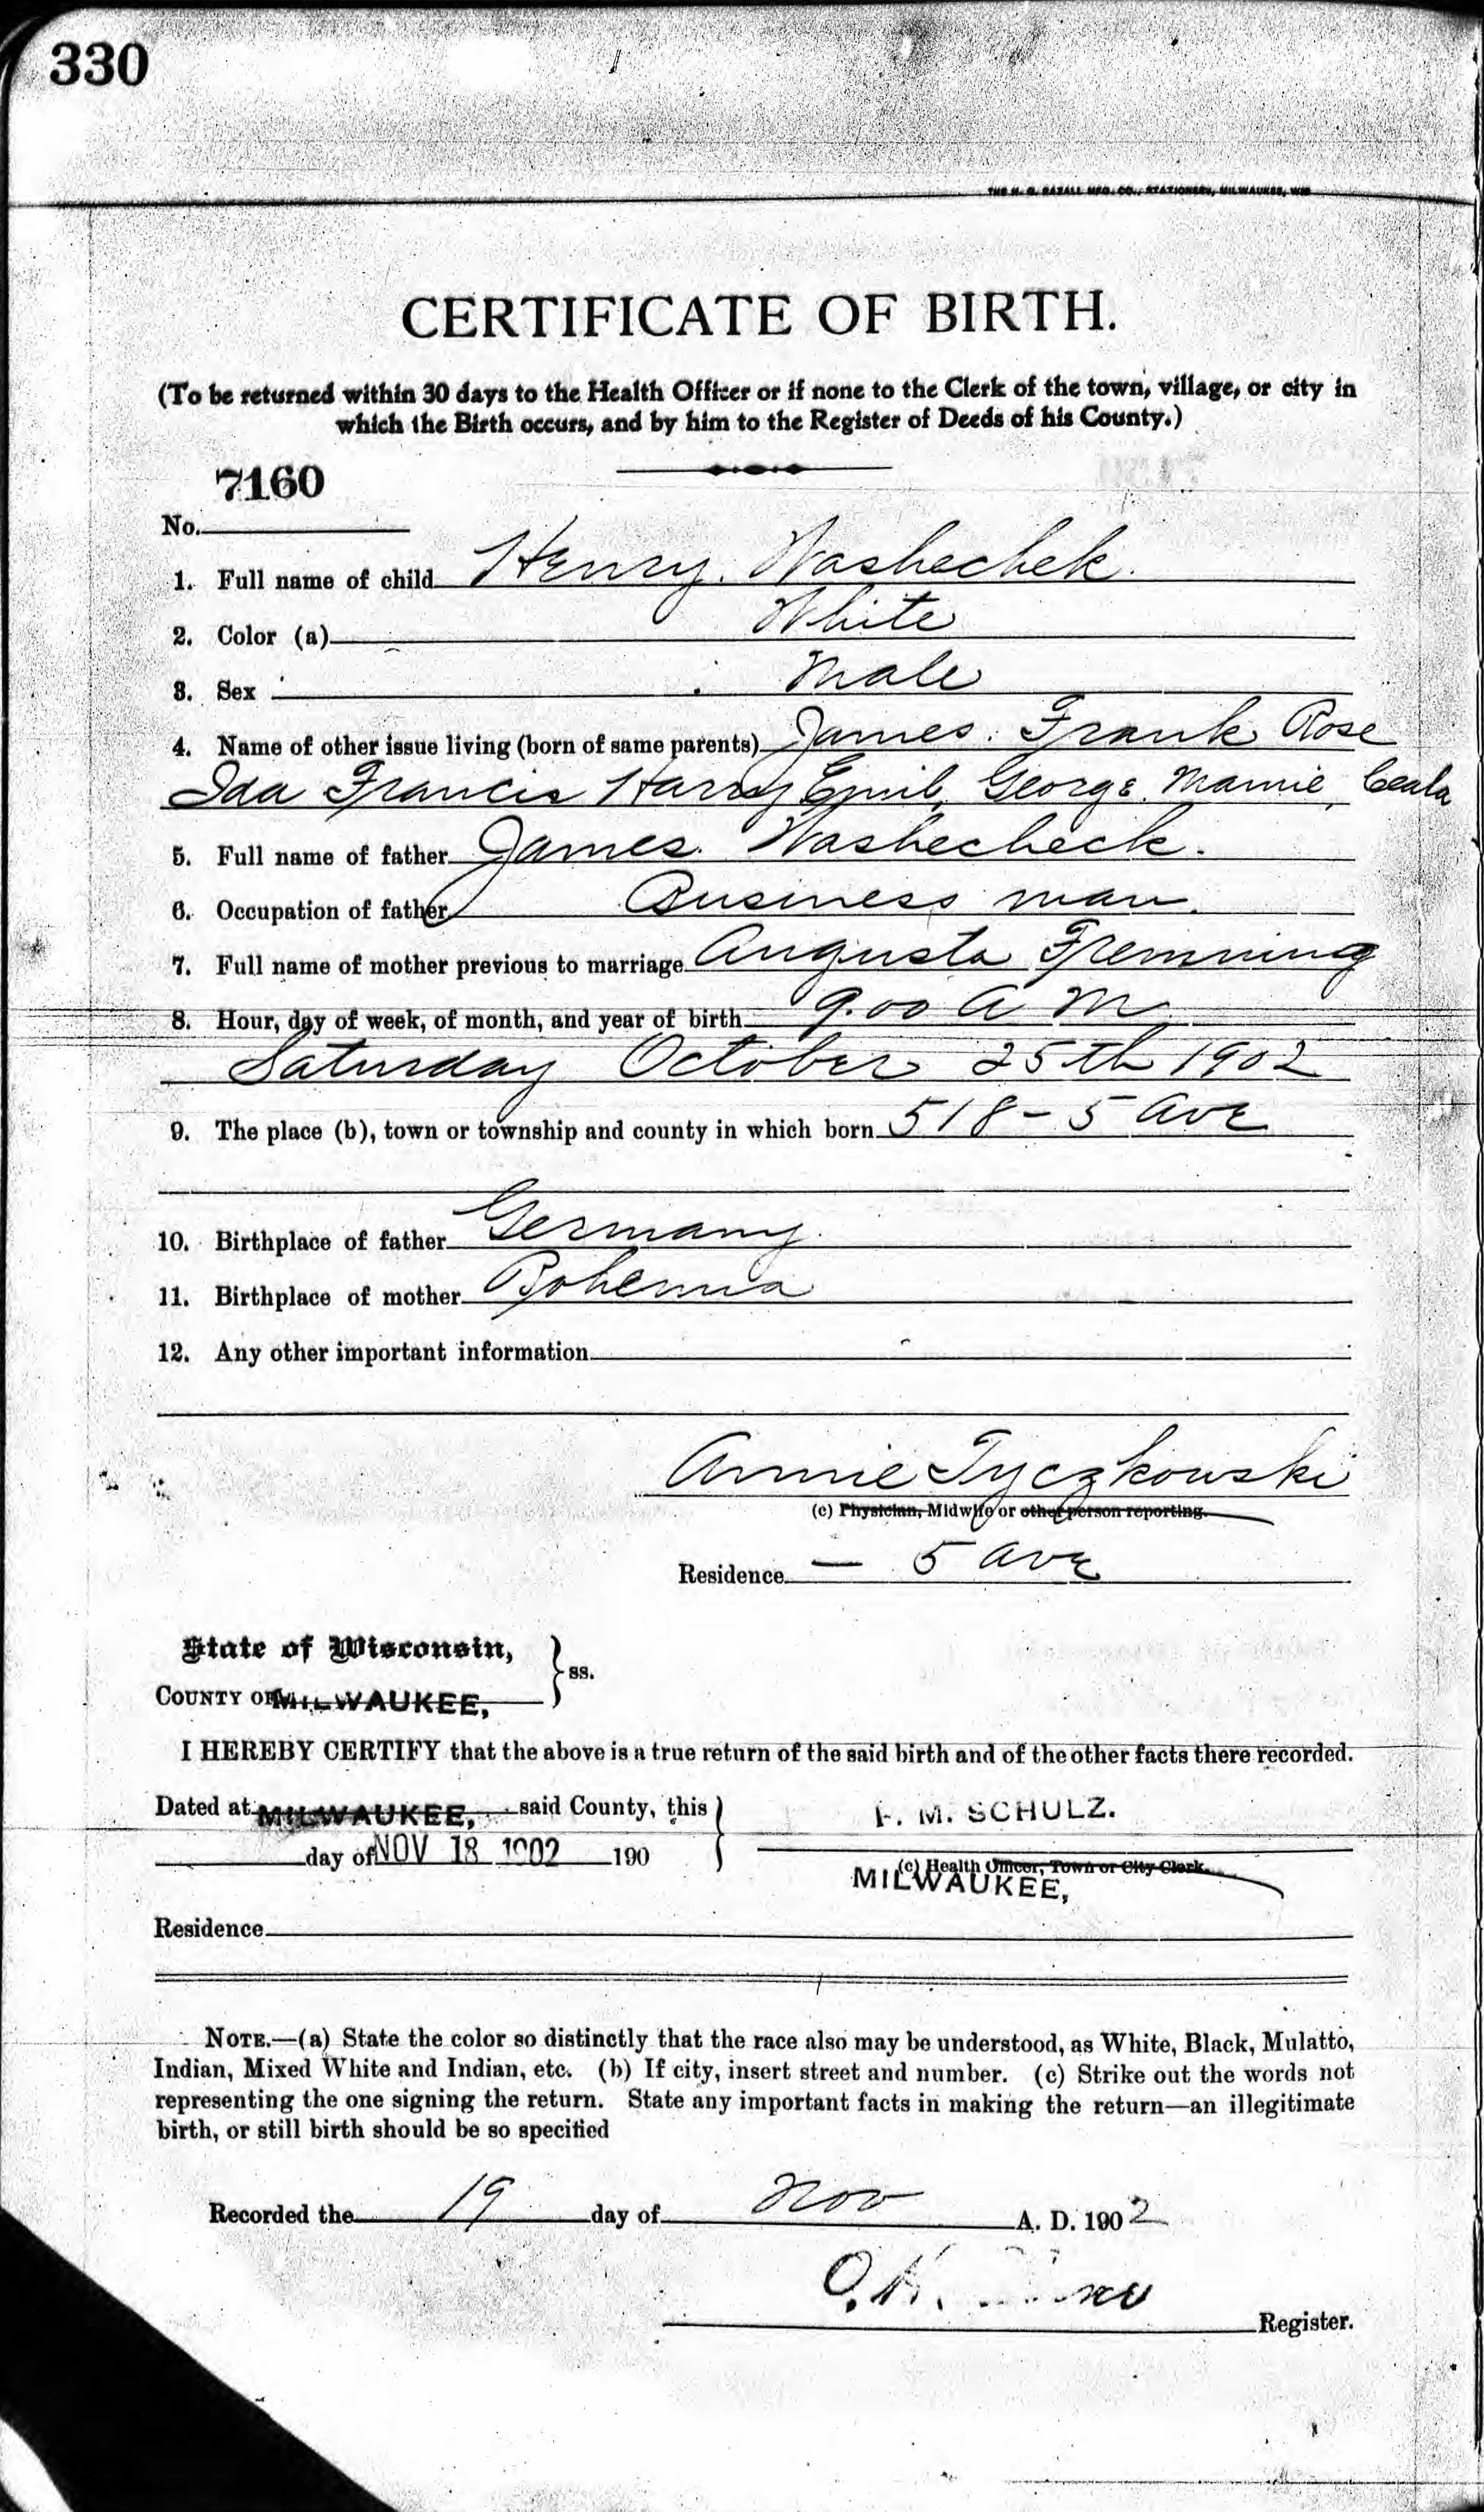 330
THE H. G. RAZALL MFG. CO., STATIONERS, MILWAUKEE, WIS
CERTIFICATE OF BIRTH.
(To be returned within 30 days to the Health Officer or if none to the Clerk of the town, village, or city in
which the Birth occurs, and by him to the Register of Deeds of his County.)
7160
No.
1. Full name of child Henry. Washechek.
2. Color (a) White
3. Sex Male
4. Name of other issue living (born of same parents) James. Frank Rose
Ida Francis Harry Emil, George. Mamie, Ceala
5. Full name of father James. Washecheck.
6. Occupation of father Business man.
7. Full name of mother previous to marriage Augusta Fremming
8. Hour, day of week, of month, and year of birth 9.00 A M
Saturday October 25th 1902
9. The place (b), town or township and county in which born 518 - 5 Ave
10. Birthplace of father Germany.
11. Birthplace of mother Bohemia
12. Any other important information
Annie Tyczkowski
(c) Physician, Midwife or other person reporting.
Residence — 5 Ave
State of Wisconsin,
COUNTY OF MILWAUKEE, } ss.
I HEREBY CERTIFY that the above is a true return of the said birth and of the other facts there recorded.
Dated at MILWAUKEE, said County, this
F. M. SCHULZ.
day of NOV 18 1902 190
(c) Health Officer, Town or City Clerk.
MILWAUKEE,
Residence
NOTE.—(a) State the color so distinctly that the race also may be understood, as White, Black, Mulatto,
Indian, Mixed White and Indian, etc. (b) If city, insert street and number. (c) Strike out the words not
representing the one signing the return. State any important facts in making the return—an illegitimate
birth, or still birth should be so specified
Recorded the 19 day of Nov A. D. 1902
O. H.
Register.